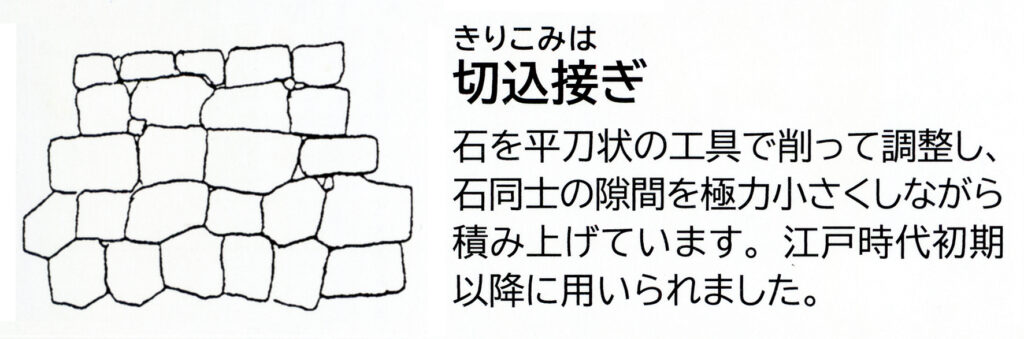 きりこみは
切込接ぎ
石を平刀状の工具で削って調整し、
石同士の隙間を極力小さくしながら
積み上げています。江戸時代初期
以降に用いられました。